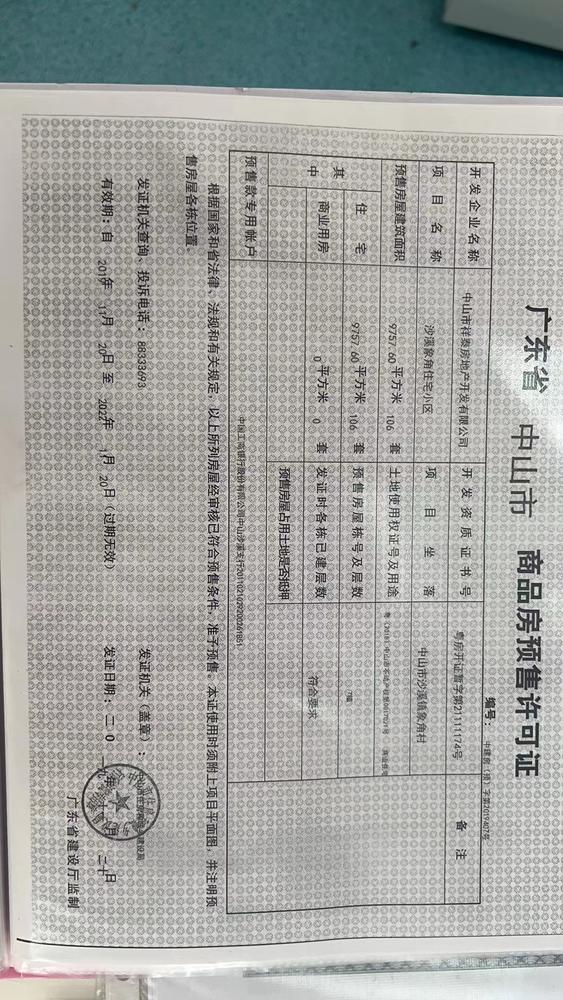 广东省 中山市 商品房预售许可证
编号： 中建房（预）字第2019407号
开发企业名称 中山市祥泰房地产开发有限公司 开发资质证书号 粤房开证暂字第21111174号 备注
项目名称 沙溪象角住宅小区 项目坐落 中山市沙溪镇象角村
预售房屋建筑面积 9757.60 平方米 106 套 土地使用权证号及用途
其中 住宅 9757.60 平方米 106 套 预售房屋栋号及层数
商业用房 0 平方米 0 套 发证时各栋已建层数 符合要求
预售房屋占用土地是否抵押
预售款专用帐户 中国工商银行股份有限公司中山沙溪支行
根据国家和省法律、法规和有关规定，以上所列房屋经审核已符合预售条件，准予预售。本证使用时须附上项目平面图，并注明预
售房屋各栋位置。
发证机关查询、投诉电话： 88333693 发证机关（盖章）：
有效期：自 2019年 11月 20日至 2022年 月 20日（过期无效） 发证日期：二0一九年 月二十日
广东省建设厅监制